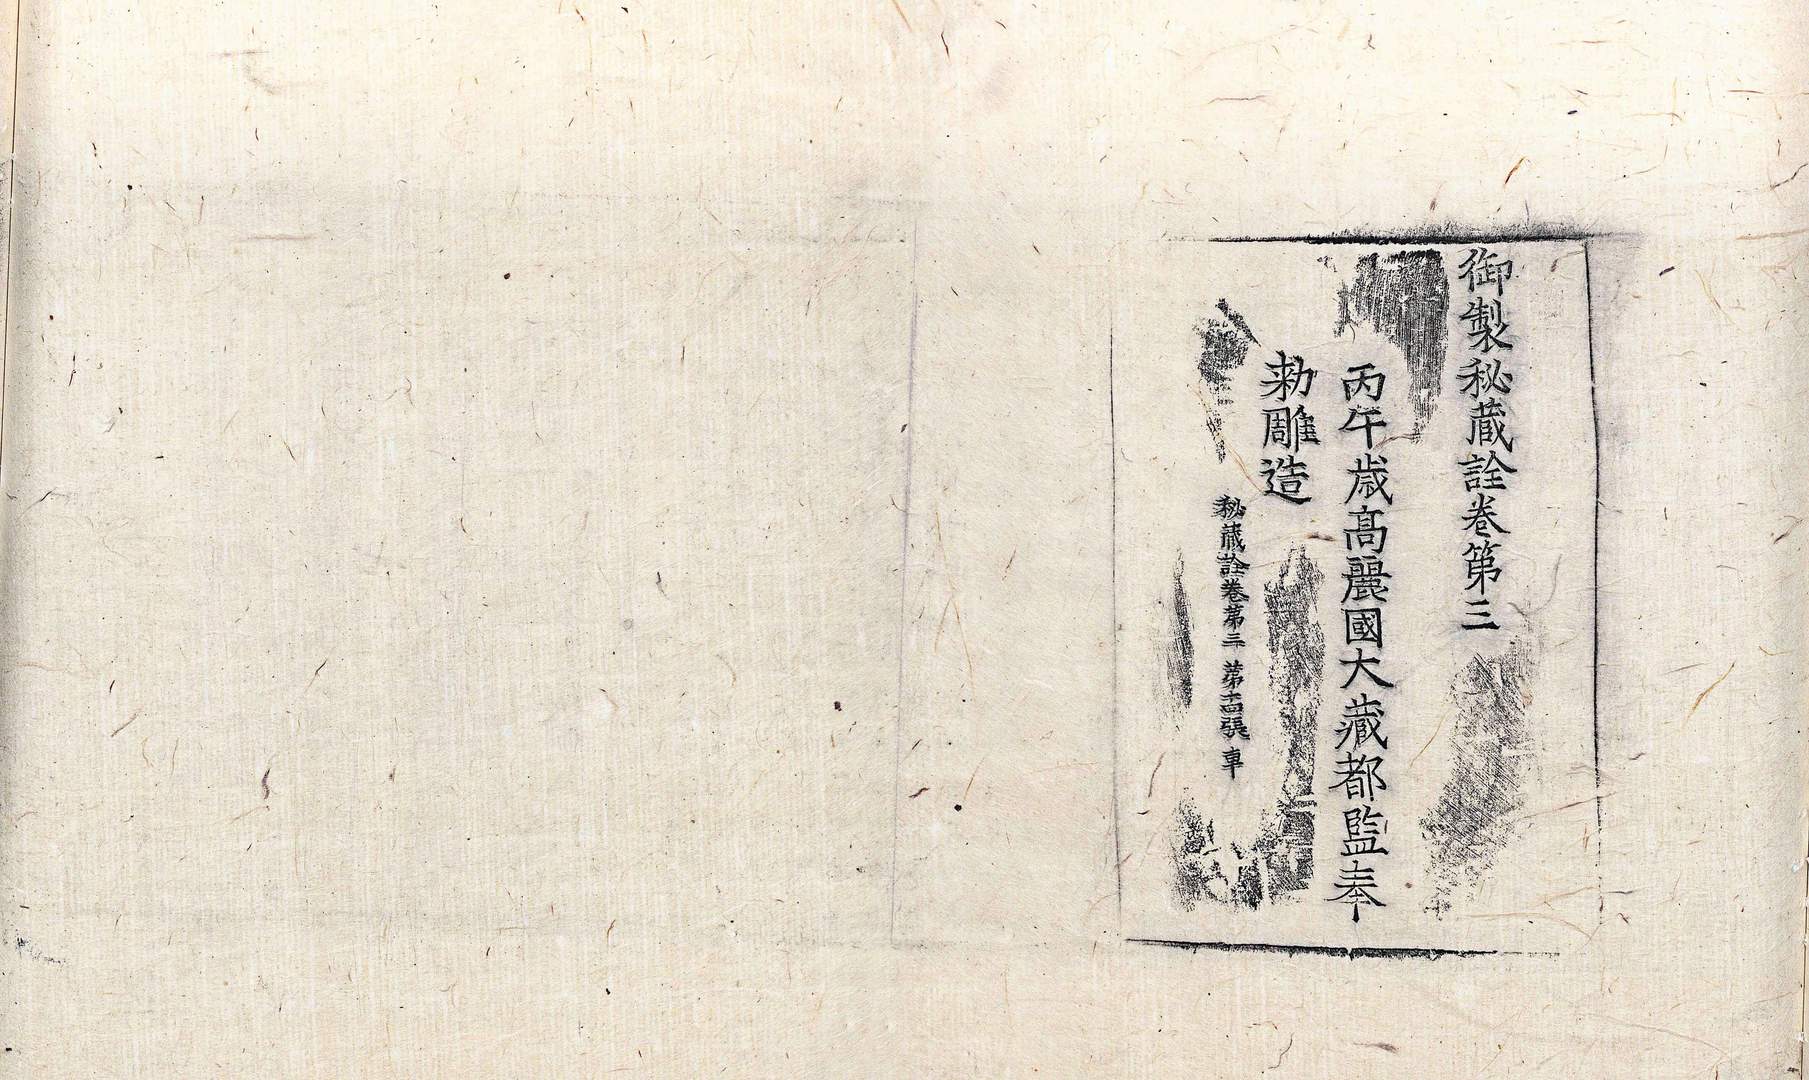 御製秘蔵詮卷第三
丙午歳髙麗國大藏都監奉
勑雕造
秘蔵詮卷第三 第十四張 車